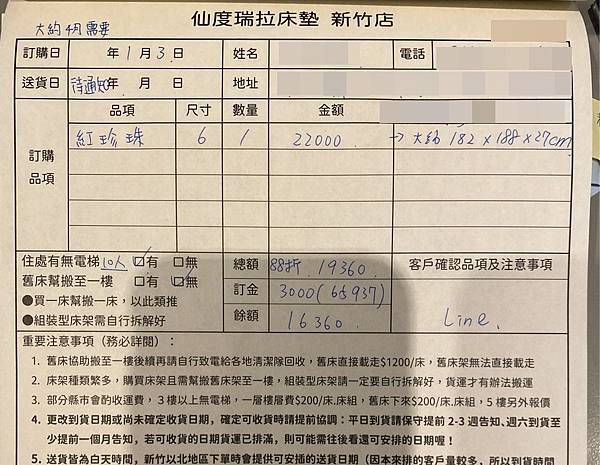 仙度瑞拉床墊 新竹店
大約4月需要
訂購日 年1月3日 姓名 電話
送貨日 待通知年 月 日 地址
品項 尺寸 數量 金額
訂購品項
紅珍珠 6 1 22000 → 大約 182×188×27cm
住處有無電梯 10人 ☑有 □無 總額 88折 19360 客戶確認品項及注意事項
舊床幫搬至一樓 □有 ☑無 訂金 3000(65937)
●買一床幫搬一床，以此類推
●組裝型床架需自行拆解好 餘額 16360 Line.
重要注意事項（務必詳閱）：
1. 舊床協助搬至一樓後續再請自行致電給各地清潔隊回收，舊床直接載走$1200/床，舊床架無法直接載走
2. 床架種類繁多，購買床架且需幫搬舊床架至一樓，組裝型床架請一定要自行拆解好，貨運才有辦法搬運
3. 部分縣市會酌收運費，3樓以上無電梯，一層樓層費$200/床.床組，舊床下來$200/床.床組，5樓另外報價
4. 更改到貨日期或尚未確定收貨日期，確定可收貨時請提前協調：平日到貨請保守提前 2-3 週告知、週六到貨至
少提前一個月告知，若可收貨的日期貨運已排滿，則可能需往後看還可安排的日期喔！
5. 送貨皆為白天時間，新竹以北地區下單時會提供可安插的送貨日期（因本來排的客戶量較多，所以到貨時間